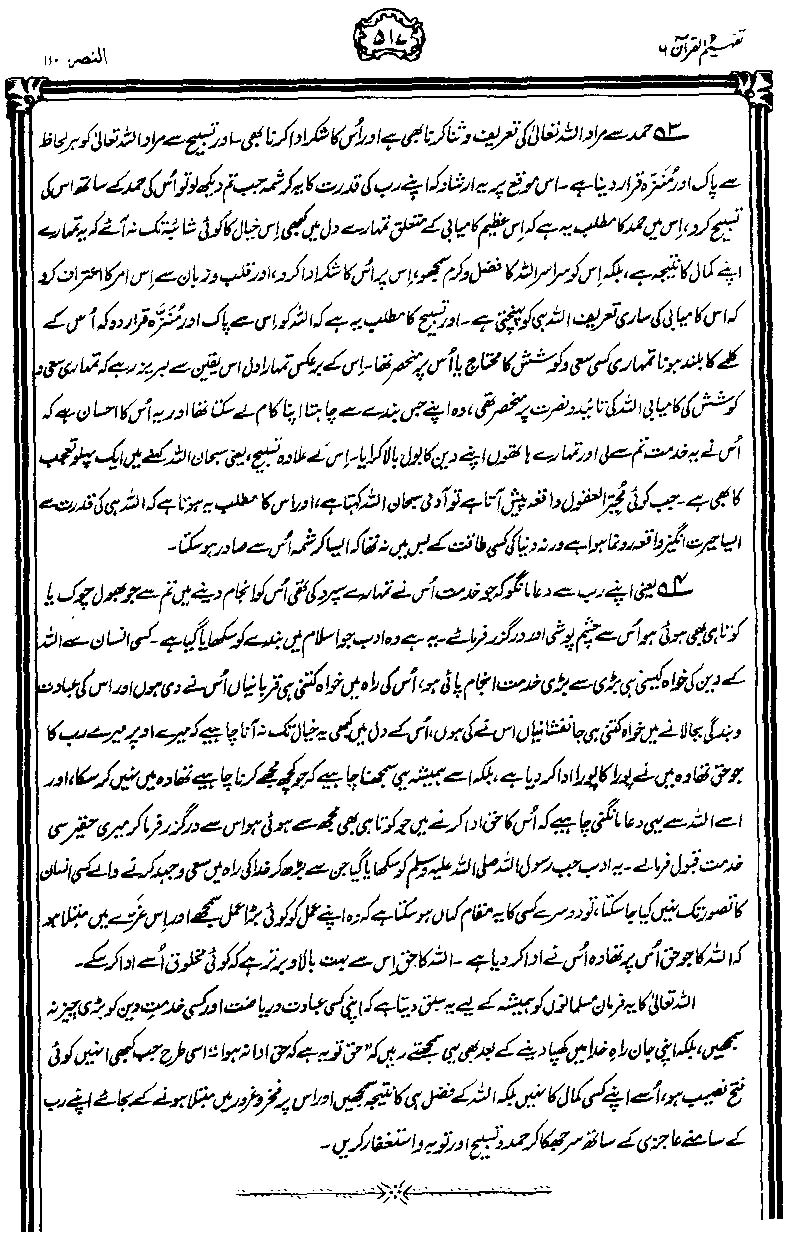 تفہیم القرآن ۶
۵۱۷
النصر ۱۱۰
۳ حمد سے مراد اللہ تعالیٰ کی تعریف و ثنا کرنا بھی ہے اور اُس کا شکر ادا کرنا بھی۔ اور تسبیح سے مراد اللہ تعالیٰ کو ہر لحاظ
سے پاک اور مُنَزَّہ قرار دینا ہے۔ اس موقع پر یہ ارشاد کہ اپنے رب کی قدرت کا یہ کرشمہ جب تم دیکھ لو تو اُس کی حمد کے ساتھ اس کی
تسبیح کرو، اِس میں حمد کا مطلب یہ ہے کہ اِس عظیم کامیابی کے متعلق تمہارے دل میں کبھی اِس خیال کا کوئی شائبہ تک نہ آئے کہ یہ تمہارے
اپنے کمال کا نتیجہ ہے، بلکہ اِس کو سراسر اللہ کا فضل و کرم سمجھو، اِس پر اُس کا شکر ادا کرو، اور قلب و زبان سے اِس امر کا اعتراف کرو
کہ اس کامیابی کی ساری تعریف اللہ ہی کو پہنچتی ہے۔ اور تسبیح کا مطلب یہ ہے کہ اللہ کو اِس سے پاک اور مُنَزَّہ قرار دو کہ اُس کے
کلمے کا بلند ہونا تمہاری کسی سعی و کوشش کا محتاج یا اُس پر منحصر تھا۔ اِس کے برعکس تمہارا دل اس یقین سے لبریز رہے کہ تمہاری سعی و
کوشش کی کامیابی اللہ کی تائید و نصرت پر منحصر تھی، وہ اپنے جس بندے سے چاہتا اپنا کام لے سکتا تھا اور یہ اُس کا احسان ہے کہ
اُس نے یہ خدمت تم سے لی اور تمہارے ہاتھوں اپنے دین کا بول بالا کرایا۔ اِس کے علاوہ تسبیح، یعنی سبحان اللہ کہنے میں ایک پہلو تعجب
کا بھی ہے۔ جب کوئی مُحیّر العقول واقعہ پیش آتا ہے تو آدمی سبحان اللہ کہتا ہے، اور اس کا مطلب یہ ہوتا ہے کہ اللہ ہی کی قدرت سے
ایسا حیرت انگیز واقعہ رونما ہوا ہے ورنہ دنیا کی کسی طاقت کے بس میں نہ تھا کہ ایسا کرشمہ اُس سے صادر ہو سکتا۔
۴ یعنی اپنے رب سے دعا مانگو کہ جو خدمت اُس نے تمہارے سپرد کی تھی اُس کو انجام دینے میں تم سے جو بھول چوک یا
کوتاہی بھی ہوئی ہو اُس سے چشم پوشی اور درگزر فرمائے۔ یہ ہے وہ ادب جو اسلام میں بندے کو سکھایا گیا ہے۔ کسی انسان سے اللہ
کے دین کی خواہ کیسی ہی بڑی سے بڑی خدمت انجام پائی ہو، اُس کی راہ میں خواہ کتنی ہی قربانیاں اُس نے دی ہوں اور اس کی عبادت
و بندگی بجا لانے میں خواہ کتنی ہی جانفشانیاں اس نے کی ہوں، اُس کے دل میں کبھی یہ خیال تک نہ آنا چاہیے کہ میرے اوپر میرے رب کا
جو حق تھا وہ میں نے پورا کا پورا ادا کر دیا ہے، بلکہ اسے ہمیشہ یہی سمجھنا چاہیے کہ جو کچھ مجھے کرنا چاہیے تھا وہ میں نہیں کر سکا، اور
اسے اللہ سے یہی دعا مانگنی چاہیے کہ اُس کا حق ادا کرنے میں جو کوتاہی بھی مجھ سے ہوئی ہو اس سے درگزر فرما کر میری حقیر سی
خدمت قبول فرما لے۔ یہ ادب جب رسول اللہ صلی اللہ علیہ وسلم کو سکھایا گیا جن سے بڑھ کر خدا کی راہ میں سعی و جہد کرنے والے کسی انسان
کا تصور تک نہیں کیا جا سکتا، تو دوسرے کسی کا یہ مقام کہاں ہو سکتا ہے کہ وہ اپنے عمل کو کوئی بڑا عمل سمجھے اور اِس غَرّے میں مبتلا ہو
کہ اللہ کا جو حق اُس پر تھا وہ اُس نے ادا کر دیا ہے۔ اللہ کا حق اِس سے بہت بالا و برتر ہے کہ کوئی مخلوق اُسے ادا کر سکے۔
اللہ تعالیٰ کا یہ فرمان مسلمانوں کو ہمیشہ کے لیے یہ سبق دیتا ہے کہ اپنی کسی عبادت و ریاضت اور کسی خدمتِ دین کو بڑی چیز نہ
سمجھیں، بلکہ اپنی جان راہِ خدا میں کھپا دینے کے بعد بھی یہی سمجھتے رہیں کہ "حق تو یہ ہے کہ حق ادا نہ ہوا"۔ اسی طرح جب کبھی اُنہیں کوئی
فتح نصیب ہو، اُسے اپنے کسی کمال کا نہیں بلکہ اللہ کے فضل ہی کا نتیجہ سمجھیں اور اس پر فخر و غرور میں مبتلا ہونے کے بجائے اپنے رب
کے سامنے عاجزی کے ساتھ سر جھکا کر حمد و تسبیح اور توبہ و استغفار کریں۔